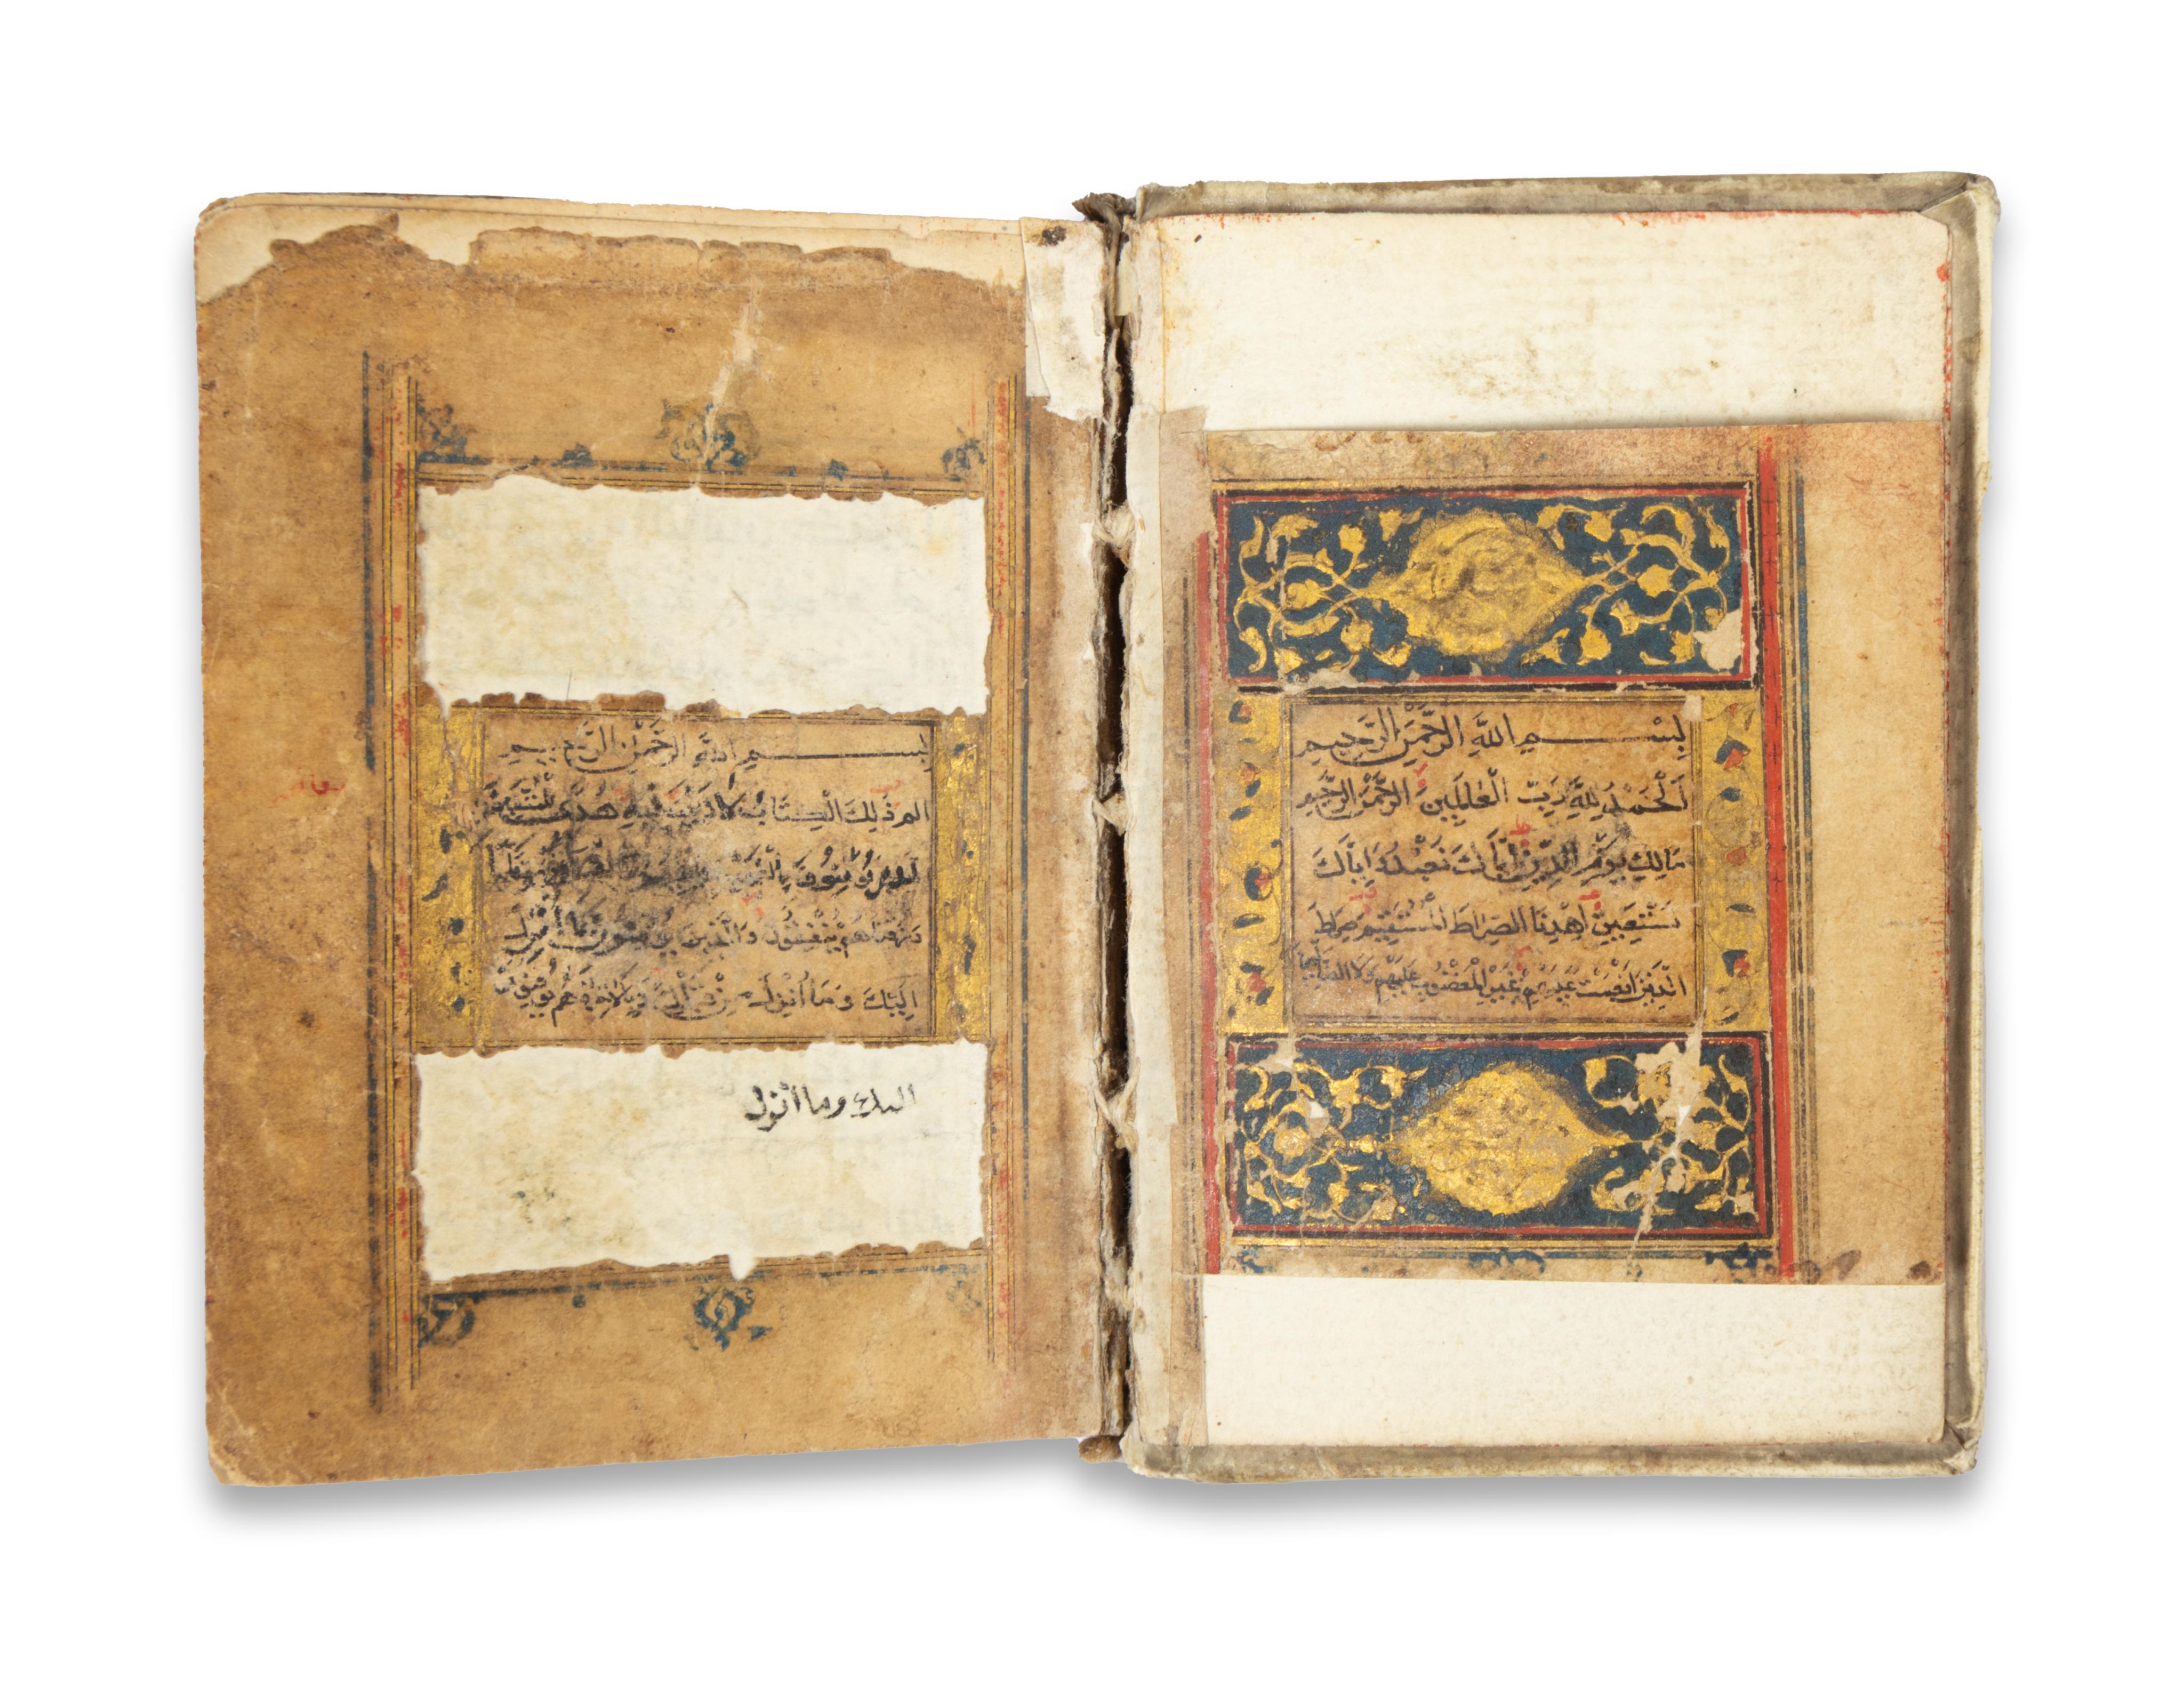 بِسْمِ اللّٰهِ الرَّحْمٰنِ الرَّحِيمِ
اَلْحَمْدُ لِلّٰهِ رَبِّ الْعٰلَمِينَ الرَّحْمٰنِ الرَّحِيمِ
مَالِكِ يَوْمِ الدِّينِ اِيَّاكَ نَعْبُدُ وَاِيَّاكَ
نَسْتَعِينُ اِهْدِنَا الصِّرَاطَ الْمُسْتَقِيمَ صِرَاطَ
الَّذِينَ اَنْعَمْتَ عَلَيْهِمْ غَيْرِ الْمَغْضُوبِ عَلَيْهِمْ وَلَا الضَّالِّينَ
بِسْمِ اللّٰهِ الرَّحْمٰنِ الرَّحِيمِ
الم ذَلِكَ الْكِتَابُ لَا رَيْبَ فِيهِ هُدًى لِلْمُتَّقِينَ
يُؤْمِنُونَ بِالْغَيْبِ
رَزَقْنَاهُمْ يُنْفِقُونَ وَالَّذِينَ يُؤْمِنُونَ بِمَا أُنْزِلَ
اِلَيْكَ وَمَا أُنْزِلَ مِنْ قَبْلِكَ وَبِالْاٰخِرَةِ هُمْ يُوقِنُونَ
اليك وما أنزل